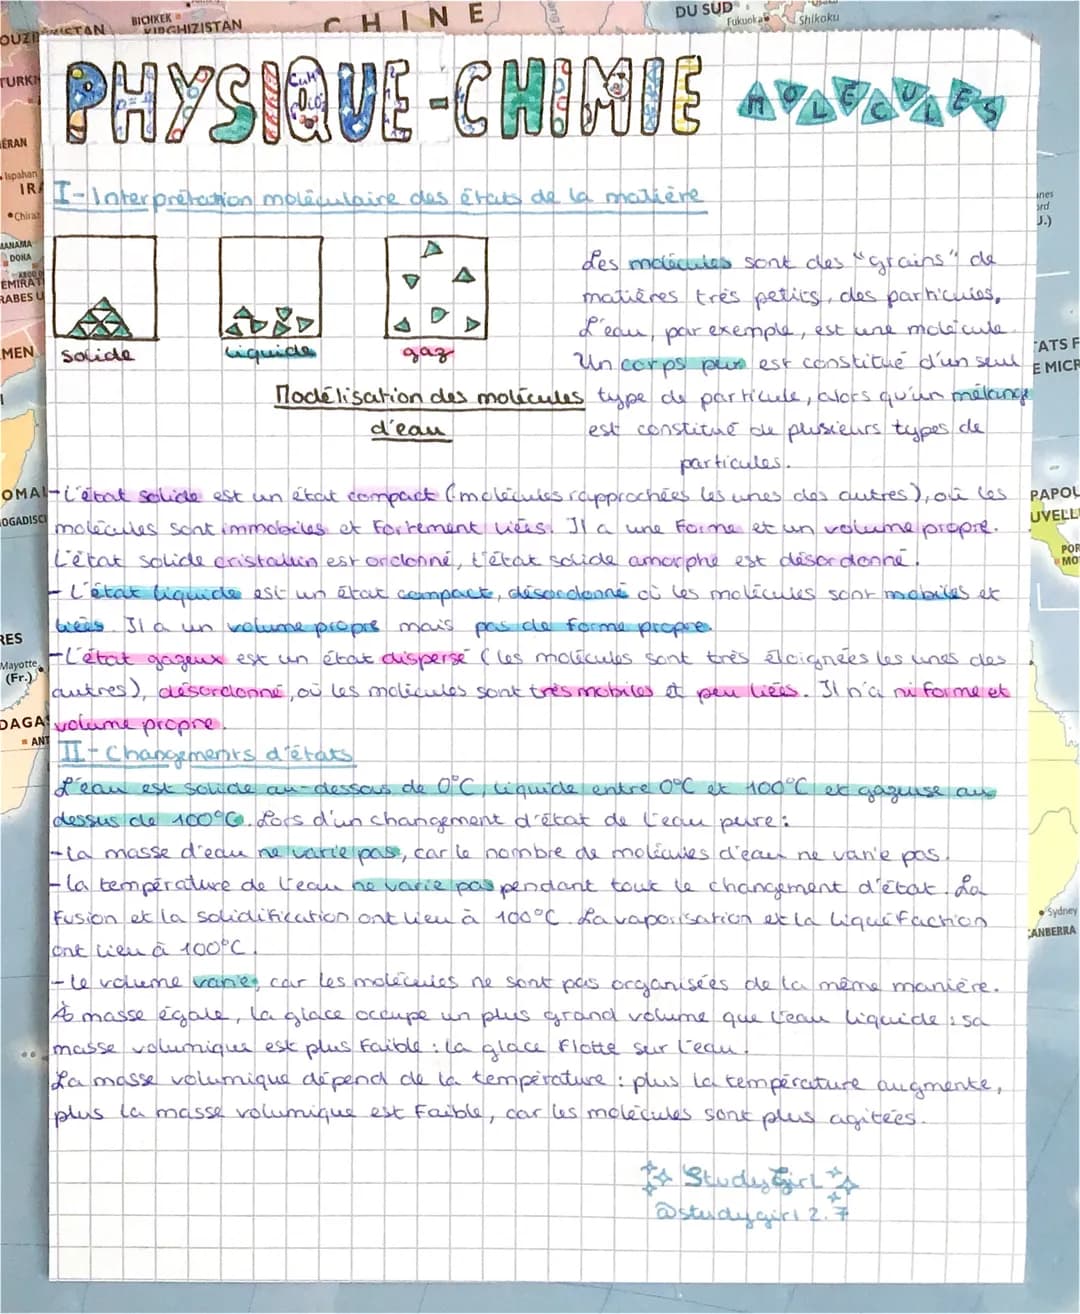 BICHKEK
OUZBÉKISTAN
KIRGHIZISTAN
CHINE
DU SUD
Fukuoka
Shikoku
TURKM
ÉRAN
Ispahan
IRA
Chiraz
MANAMA
DOHA
ÉMIRAT
RABES U
MEN
OMAL
OGADISC
RES
Mayotte
(Fr.)
DAGA
ANT
PHYSIQUE-CHIMIE MOLÉCULES
I-Interprétation moléculaire des états de la matière
solide
liquide
gaz
Modélisation des molécules
d'eau
Les molécules sont des "grains" de
matières très petits, des particules,
L'eau, par exemple, est une molécule.
Un corps pur est constitué d'un seul
type de particule, alors qu'un mélange
est constitué de plusieurs types de
particules.
-L'état solide est un état compact (molécules rapprochées les unes des autres), où les
molécules sont immobiles et fortement liées. Il a une forme et un volume propre.
L'état solide cristallin est ordonné, l'état solide amorphe est désordonné.
-L'état liquide est un état compact, désordonné où les molécules sont mobiles et
liées. Il a un volume propre mais pas de forme propre.
-L'état gazeux est un état dispersé (les molécules sont très éloignées les unes des
autres), désordonné, où les molécules sont très mobiles et peu liées. Il n'a ni forme et
volume propre.
II-Changements d'états
L'eau est solide au-dessous de 0°C, liquide entre 0°C et 100°C et gazeuse au
dessus de 100°C. Lors d'un changement d'état de l'eau pure :
-la masse d'eau ne varie pas, car le nombre de molécules d'eau ne varie pas.
-la température de l'eau ne varie pas pendant tout le changement d'état. La
fusion et la solidification ont lieu à 100°C. La vaporisation et la liquéfaction
ont lieu à 100°C.
-le volume varie, car les molécules ne sont pas organisées de la même manière.
À masse égale, la glace occupe un plus grand volume que l'eau liquide : sa
masse volumique est plus faible : la glace flotte sur l'eau.
La masse volumique dépend de la température : plus la température augmente,
plus la masse volumique est faible, car les molécules sont plus agitées.
StudyGirl
@studygirl2.7
ATS F
E MICR
PAPOU
UVELL
POR
MO
Sydney
CANBERRA